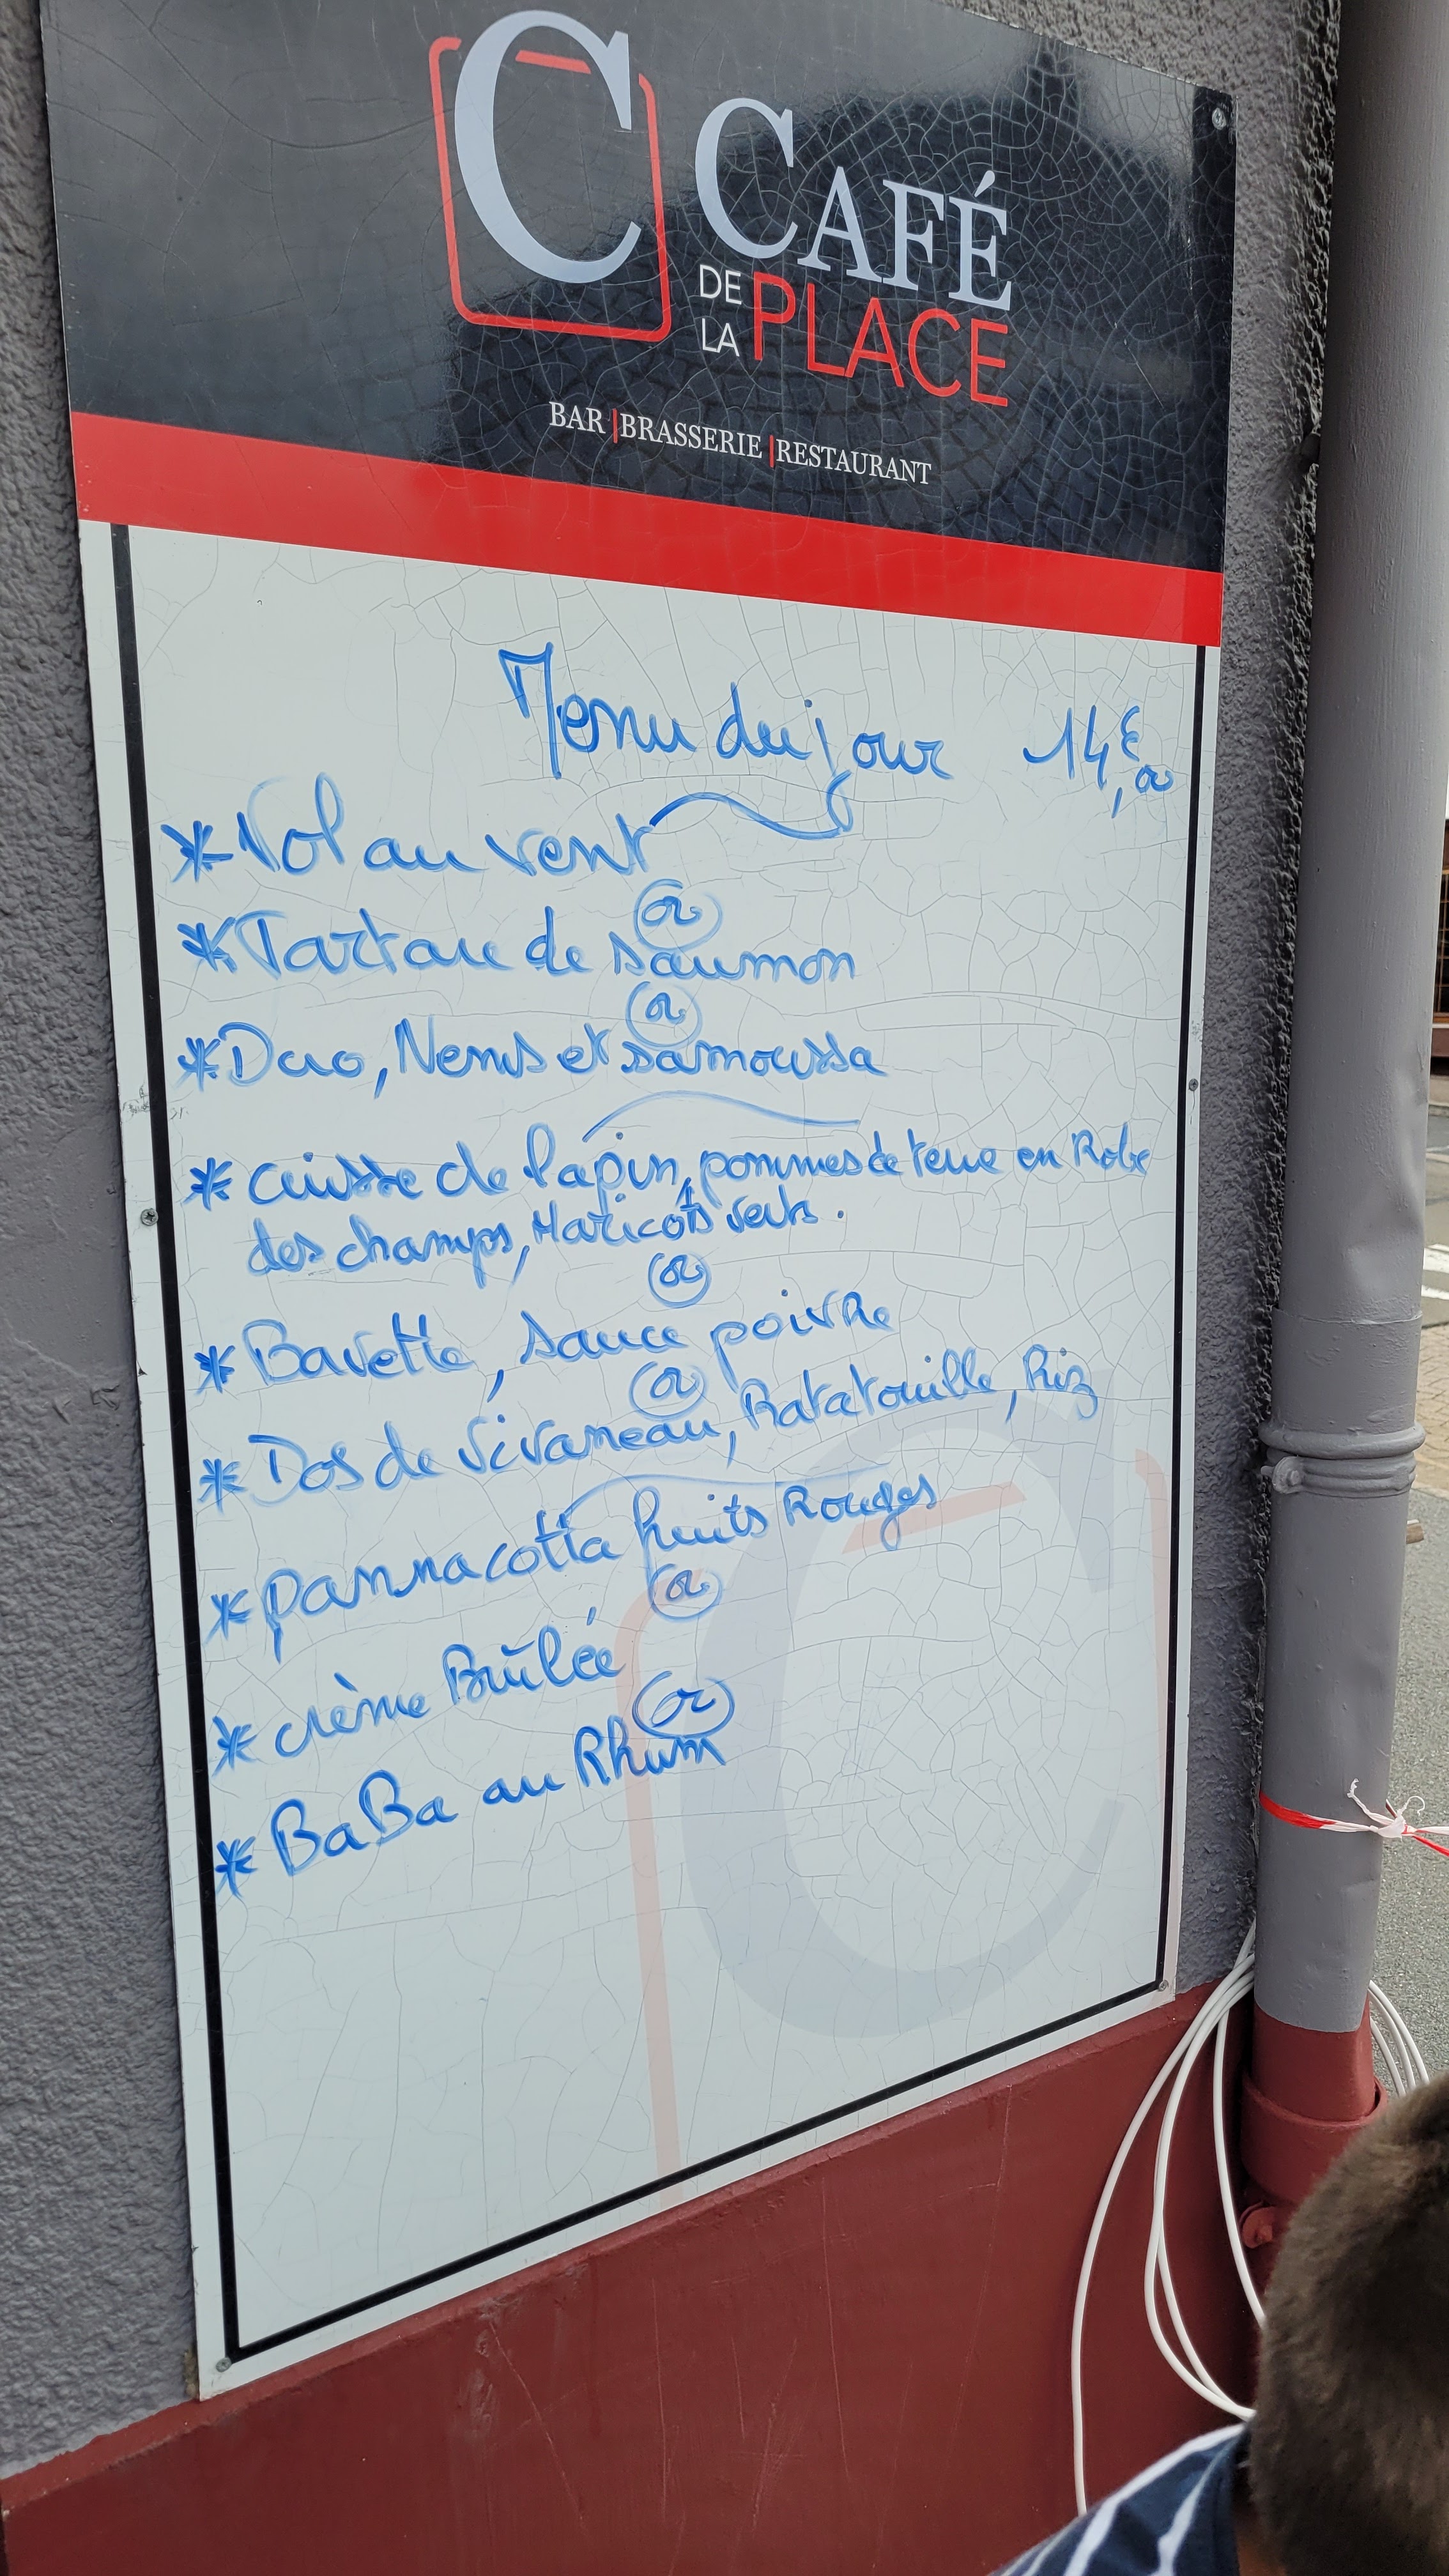 C CAFÉ
DE LA PLACE
BAR | BRASSERIE | RESTAURANT
Menu du jour 14,€00
* Vol au vent
* Tartare de saumon
* Duo, Nems et samoussa
* cuisse de lapin, pommes de terre en Robe
des champs, Haricots verts.
* Bavette, sauce poivre
* Dos de vivaneau, Ratatouille, Riz
* pannacotta fruits Rouges
* crème Brûlée
* BaBa au Rhum